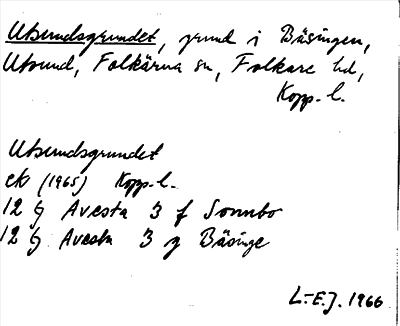 Utsundsgrundet, grund i Bäsingen,
Utsund, Folkärna sn, Folkare hd,
Kopp. l.
Utsundsgrundet
ek (1965) Kopp. l.
12 G Avesta 3 f Sonnbo
12 G Avesta 3 g Bäsinge
L.-E.J. 1966